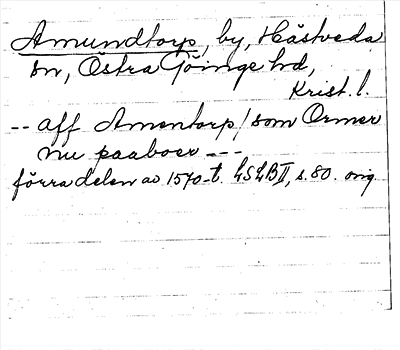 Amundtorp, by, Hästveda
sn, Östra Göinge hd,
Krist. l.
-- aff Amentorp / som Ormer
nu paaboer ---
förra delen av 1570-t. LSLB II, s. 80. orig